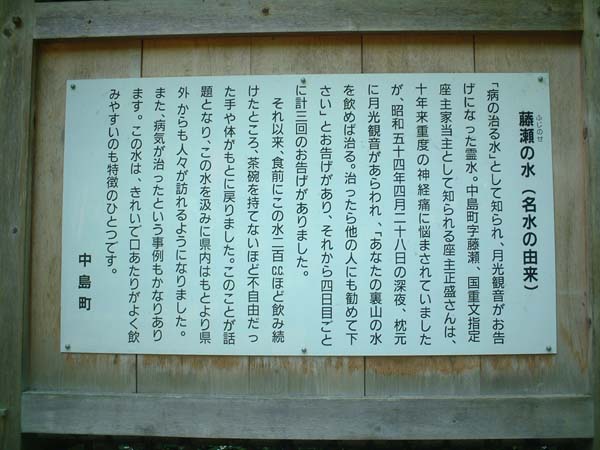 藤瀬の水（名水の由来）
ふじのせ
「病の治る水」として知られ、月光観音がお告
げになった霊水。中島町字藤瀬、国重文指定
座主家当主として知られる座主正盛さんは、
十年来重度の神経痛に悩まされていました
が、昭和五十四年四月二十八日の深夜、枕元
に月光観音があらわれ、「あなたの裏山の水
を飲めば治る。治ったら他の人にも勧めて下
さい」とお告げがあり、それから四日目ごと
に計三回のお告げがありました。
それ以来、食前にこの水二百ccほど飲み続
けたところ、茶碗を持てないほど不自由だっ
た手や体がもとに戻りました。このことが話
題となり、この水を汲みに県内はもとより県
外からも人々が訪れるようになりました。
また、病気が治ったという事例もかなりあり
ます。この水は、きれいで口あたりがよく飲
みやすいのも特徴のひとつです。
中島町